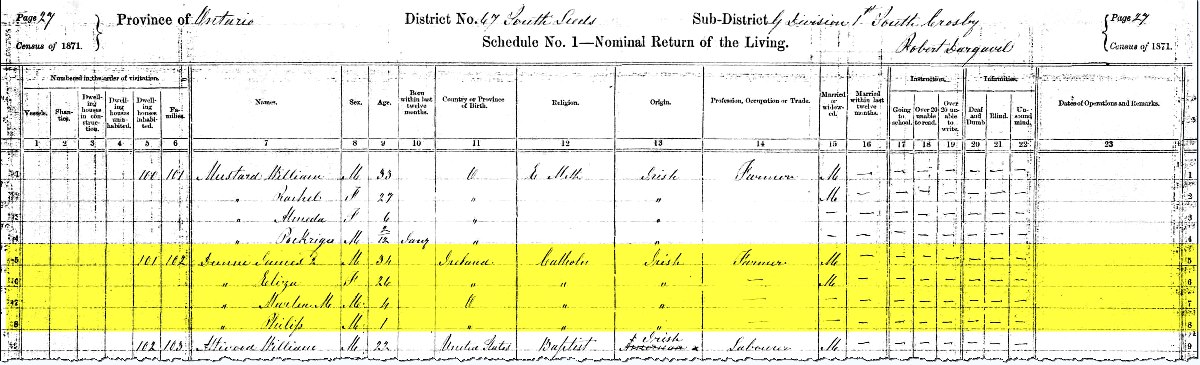 Page 27 Province of Ontario District No. 67 South Leeds Sub-District g Division 1st South Crosby Page 27
Census of 1871. Schedule No. 1—Nominal Return of the Living. Robert Dargavel Census of 1871.
Numbered in the order of visitation. Instruction. Infirmities.
Vessels. Shan-ties. Dwell-ing houses in con-struc-tion. Dwell-ing houses unin-habited. Dwell-ing houses inhabi-ted. Fa-milies. Names. Sex. Age. Born within last twelve months. Country or Province of Birth. Religion. Origin. Profession, Occupation or Trade. Married or widow-ed. Married within last twelve months. Going to school. Over 20 unable to read. Over 20 un-able to write. Deaf and Dumb Blind. Un-sound mind. Dates of Operations and Remarks.
1 2 3 4 5 6 7 8 9 10 11 12 13 14 15 16 17 18 19 20 21 22 23
1 100 101 Mustard William M 33 O E Meth Irish Farmer M — — — — — — — 1
" Rachel F 27 " " M — — — — — — — 2
" Almeda F 6 " " — — — — — — — — 3
" M 2/12 Jany " " — — — — — — — — 4
5 101 102 Dunne James M 34 Ireland Catholic Irish Farmer M — — — — — — — 5
" Eliza F 26 " " " — M — — — — — — — 6
" M M 4 O " " — — — — — — — — — 7
8 " Philip M 1 " " " — — — — — — — — — 8
102 103 William M 22 United States Baptist Irish Labourer M — — — — — — — 9